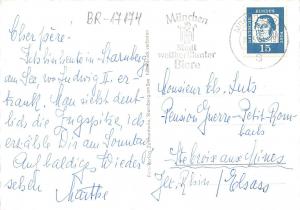 BR-17174
Cher père!
Ich bin heute in Starnberg
am See, wo Ludwig II. er
trank. Man sieht deut
lich die Zugspitze, ich
erzähle Dir am Sonntag
Auf baldiges Wieder
sehen
Marthe
München
Stadt
weltbekannter
Biere
DEUTSCHE
BUNDESPOST
15
Monsieur Chs. Luts
Pension Guerre-Petit-Rom-
bach
Ste Croix aux Mines
Ht. Rhin / Elsass